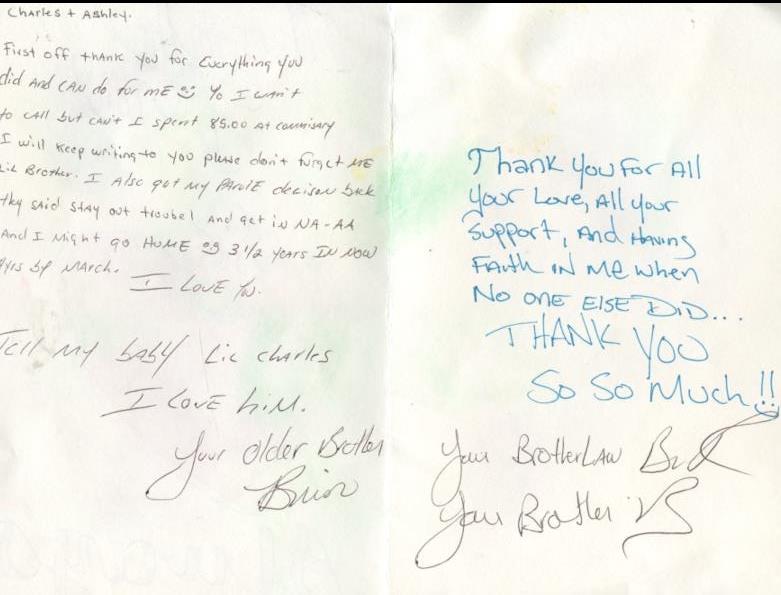 Charles + Ashley.
First off thank you for Everything you
did And CAN do for ME Yo I wan't
to call but can't I spent 85.00 at commisary
I will keep writing to you please don't forget ME
Lil Brother. I Also got my PAROLE decison back
thy said stay out troubel And get in NA-AA
And I Might go HOME 09 3 1/2 years IN NOW
4yrs by March.
I LOVE You.
Tell MY baby Lil Charles
I LOVE hiM.
Your older Brother
Brian
Thank you For All
your Love, All your
Support, And Having
FAith IN Me when
No one ElSE DiD...
THANK YOU
So So Much!!
Your BrotherLAW
Your Brother